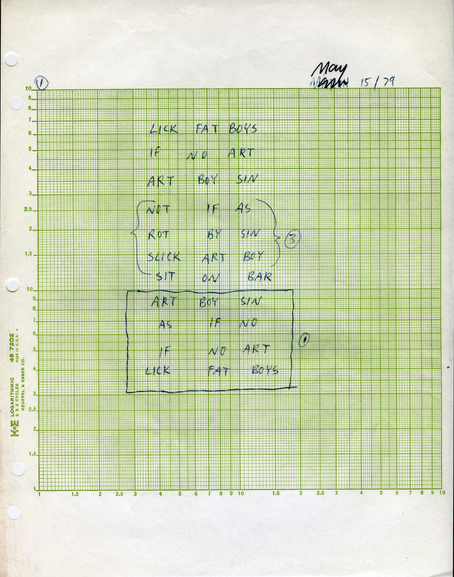 May
15/79
1
LICK FAT BOYS
IF NO ART
ART BOY SIN
NOT IF AS
ROT BY SIN
3
SLICK ART BOY
SIT ON BAR
ART BOY SIN
AS IF NO
1
IF NO ART
LICK FAT BOYS
K+E LOGARITHMIC 46 7202
2 X 2 CYCLES
KEUFFEL & ESSER CO.
10
9
8
7
6
5
4
3
2.5
2
1.5
10
9
8
7
6
5
4
3
2.5
2
1.5
1
1 1.5 2 2.5 3 4 5 6 7 8 9 10 1.5 2 2.5 3 4 5 6 7 8 9 10